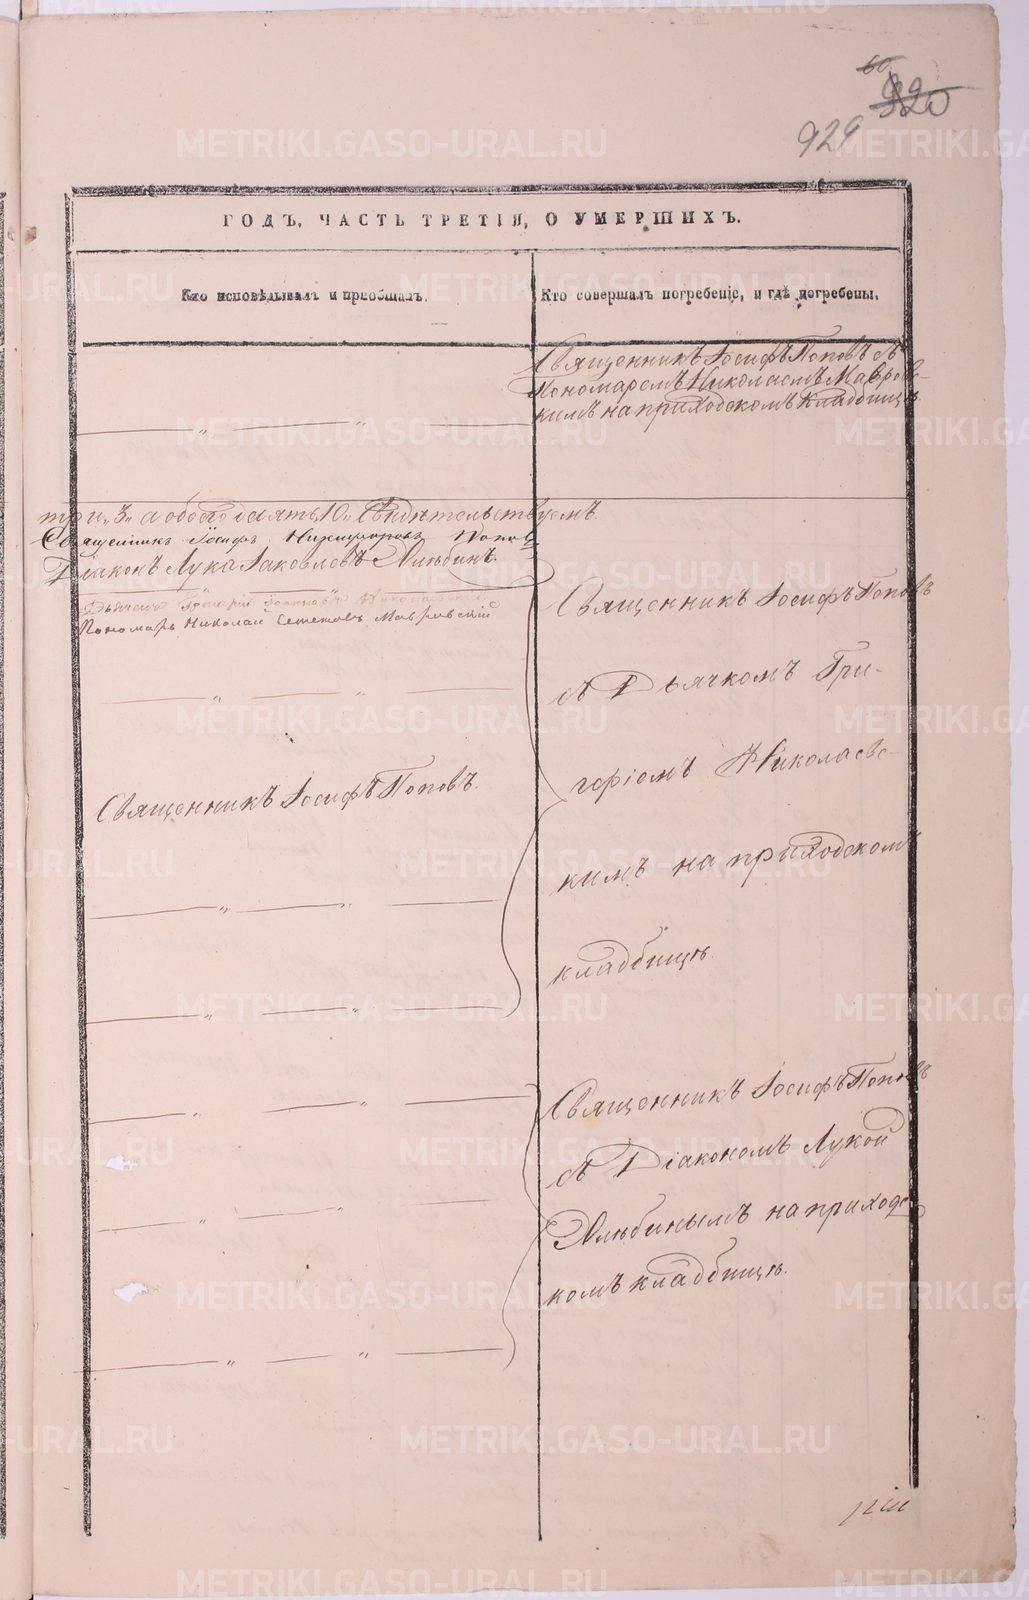 60.
920
929
ГОДЪ, ЧАСТЬ ТРЕТІЯ, О УМЕРШИХЪ.
Кто исповѣдывалъ и пріобщалъ.
Кто совершалъ погребеніе, и гдѣ погребены.
Священникъ Іосифъ Поповъ съ
Пономаремъ Николаемъ Мавровс-
кимъ на приходскомъ кладбищѣ.
три „3„ а обоего десять „10„ Свидѣтельствуемъ.
Священникъ Іосифъ Никифоровъ Поповъ
Діаконъ Лука Іаковлевъ Хлыбинъ.
Дьячекъ Григорій Іоанновъ Николаевскій
Пономарь Николай Семеновъ Мавровскій
Священникъ Іосифъ Поповъ
съ Дьячкомъ Гри-
горіемъ Николаевс-
кимъ на приходскомъ
кладбищѣ.
Священникъ Іосифъ Поповъ.
Священникъ Іосифъ Поповъ
съ Діакономъ Лукой
на приходс
комъ кладбищѣ.
METRIKI.GASO-URAL.RU